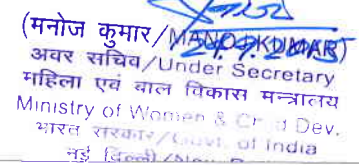 (मनोज कुमार/MANOJ KUMAR)
अवर सचिव/Under Secretary
महिला एवं बाल विकास मन्त्रालय
Ministry of Women & Ch d Dev.
भारत सरकार/Govt. of India
नई दिल्ली/New